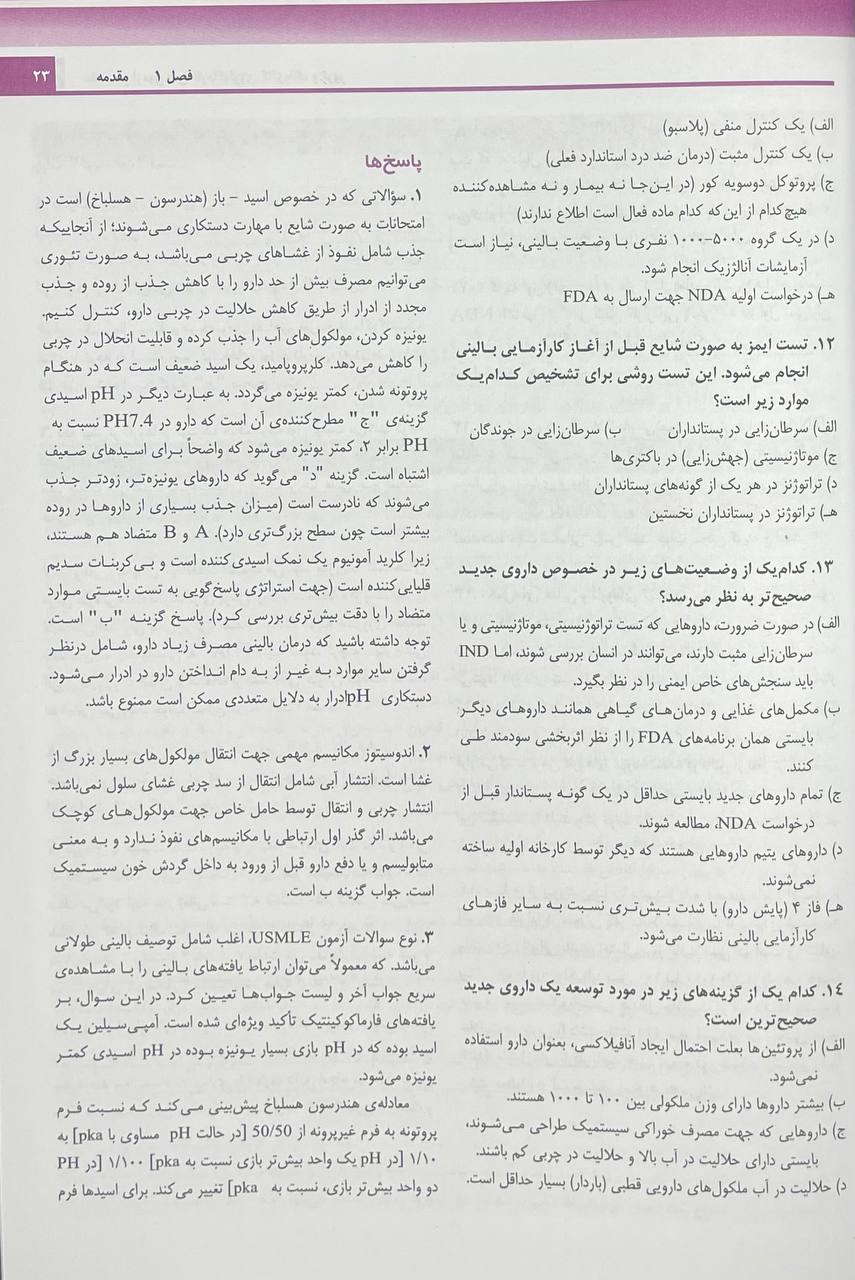 فصل ۱ مقدمه
۲۳
الف) یک کنترل منفی (پلاسبو)
ب) یک کنترل مثبت (درمان ضد درد استاندارد فعلی)
ج) پروتوکل دوسویه کور (در این‌جا نه بیمار و نه مشاهده‌کننده
هیچ‌کدام از این‌که کدام ماده فعال است اطلاع ندارند)
د) در یک گروه ۵۰۰۰-۱۰۰۰ نفری با وضعیت بالینی، نیاز است
آزمایشات آنالژزیک انجام شود.
هـ) درخواست اولیه NDA جهت ارسال به FDA
۱۲. تست ایمز به صورت شایع قبل از آغاز کارآزمایی بالینی
انجام می‌شود. این تست روشی برای تشخیص کدام‌یک
موارد زیر است؟
الف) سرطان‌زایی در پستانداران ب) سرطان‌زایی در جوندگان
ج) موتاژنیسیتی (جهش‌زایی) در باکتری‌ها
د) تراتوژنز در هر یک از گونه‌های پستانداران
هـ) تراتوژنز در پستانداران نخستین
۱۳. کدام‌یک از وضعیت‌های زیر در خصوص داروی جدید
صحیح‌تر به نظر می‌رسد؟
الف) در صورت ضرورت، داروهایی که تست تراتوژنیسیتی، موتاژنیسیتی و یا
سرطان‌زایی مثبت دارند، می‌توانند در انسان بررسی شوند، اما IND
باید سنجش‌های خاص ایمنی را در نظر بگیرد.
ب) مکمل‌های غذایی و درمان‌های گیاهی همانند داروهای دیگر
بایستی همان برنامه‌های FDA را از نظر اثربخشی سودمند طی
کنند.
ج) تمام داروهای جدید بایستی حداقل در یک گونه پستاندار قبل از
درخواست NDA، مطالعه شوند.
د) داروهای یتیم داروهایی هستند که دیگر توسط کارخانه اولیه ساخته
نمی‌شوند.
هـ) فاز ۴ (پایش دارو) با شدت بیش‌تری نسبت به سایر فازهای
کارآزمایی بالینی نظارت می‌شود.
۱۴. کدام یک از گزینه‌های زیر در مورد توسعه یک داروی جدید
صحیح‌ترین است؟
الف) از پروتئین‌ها بعلت احتمال ایجاد آنافیلاکسی، بعنوان دارو استفاده
نمی‌شود.
ب) بیشتر داروها دارای وزن ملکولی بین ۱۰۰ تا ۱۰۰۰ هستند.
ج) داروهایی که جهت مصرف خوراکی سیستمیک طراحی می‌شوند،
بایستی دارای حلالیت در آب بالا و حلالیت در چربی کم باشند.
د) حلالیت در آب ملکول‌های دارویی قطبی (باردار) بسیار حداقل است.
پاسخ‌ها
۱. سؤالاتی که در خصوص اسید - باز (هندرسون - هسلباخ) است در
امتحانات به صورت شایع با مهارت دستکاری می‌شوند؛ از آنجاییکه
جذب شامل نفوذ از غشاهای چربی می‌باشد، به صورت تئوری
می‌توانیم مصرف بیش از حد دارو را با کاهش جذب از روده و جذب
مجدد از ادرار از طریق کاهش حلالیت در چربی دارو، کنترل کنیم.
یونیزه کردن، مولکول‌های آب را جذب کرده و قابلیت انحلال در چربی
را کاهش می‌دهد. کلرپروپامید، یک اسید ضعیف است که در هنگام
پروتونه شدن، کمتر یونیزه می‌گردد. به عبارت دیگر در pH اسیدی
گزینه‌ی "ج" مطرح‌کننده‌ی آن است که دارو در PH7.4 نسبت به
PH برابر ۲، کمتر یونیزه می‌شود که واضحاً برای اسیدهای ضعیف
اشتباه است. گزینه "د" می‌گوید که داروهای یونیزه‌تر، زودتر جذب
می‌شوند که نادرست است (میزان جذب بسیاری از داروها در روده
بیشتر است چون سطح بزرگ‌تری دارد). A و B متضاد هم هستند،
زیرا کلرید آمونیوم یک نمک اسیدی‌کننده است و بی‌کربنات سدیم
قلیایی‌کننده است (جهت استراتژی پاسخ‌گویی به تست بایستی موارد
متضاد را با دقت بیش‌تری بررسی کرد). پاسخ گزینه "ب" است.
توجه داشته باشید که درمان بالینی مصرف زیاد دارو، شامل درنظر
گرفتن سایر موارد به غیر از به دام انداختن دارو در ادرار می‌شود.
دستکاری pHادرار به دلایل متعددی ممکن است ممنوع باشد.
۲. اندوسیتوز مکانیسم مهمی جهت انتقال مولکول‌های بسیار بزرگ از
غشا است. انتشار آبی شامل انتقال از سد چربی غشای سلول نمی‌باشد.
انتشار چربی و انتقال توسط حامل خاص جهت مولکول‌های کوچک
می‌باشد. اثر گذر اول ارتباطی با مکانیسم‌های نفوذ ندارد و به معنی
متابولیسم و یا دفع دارو قبل از ورود به داخل گردش خون سیستمیک
است. جواب گزینه ب است.
۳. نوع سوالات آزمون USMLE، اغلب شامل توصیف بالینی طولانی
می‌باشد. که معمولاً می‌توان ارتباط یافته‌های بالینی را با مشاهده‌ی
سریع جواب آخر و لیست جواب‌ها تعیین کرد. در این سوال، بر
یافته‌های فارماکوکینتیک تأکید ویژه‌ای شده است. آمپی‌سیلین یک
اسید بوده که در pH بازی بسیار یونیزه بوده در pH اسیدی کمتر
یونیزه می‌شود.
معادله‌ی هندرسون هسلباخ پیش‌بینی می‌کند که نسبت فرم
پروتونه به فرم غیرپرونه از 50/50 [در حالت pH مساوی با pka] به
۱/۱۰ [در pH یک واحد بیش‌تر بازی نسبت به pka] ۱/۱۰۰ [در PH
دو واحد بیش‌تر بازی، نسبت به pka] تغییر می‌کند. برای اسیدها فرم